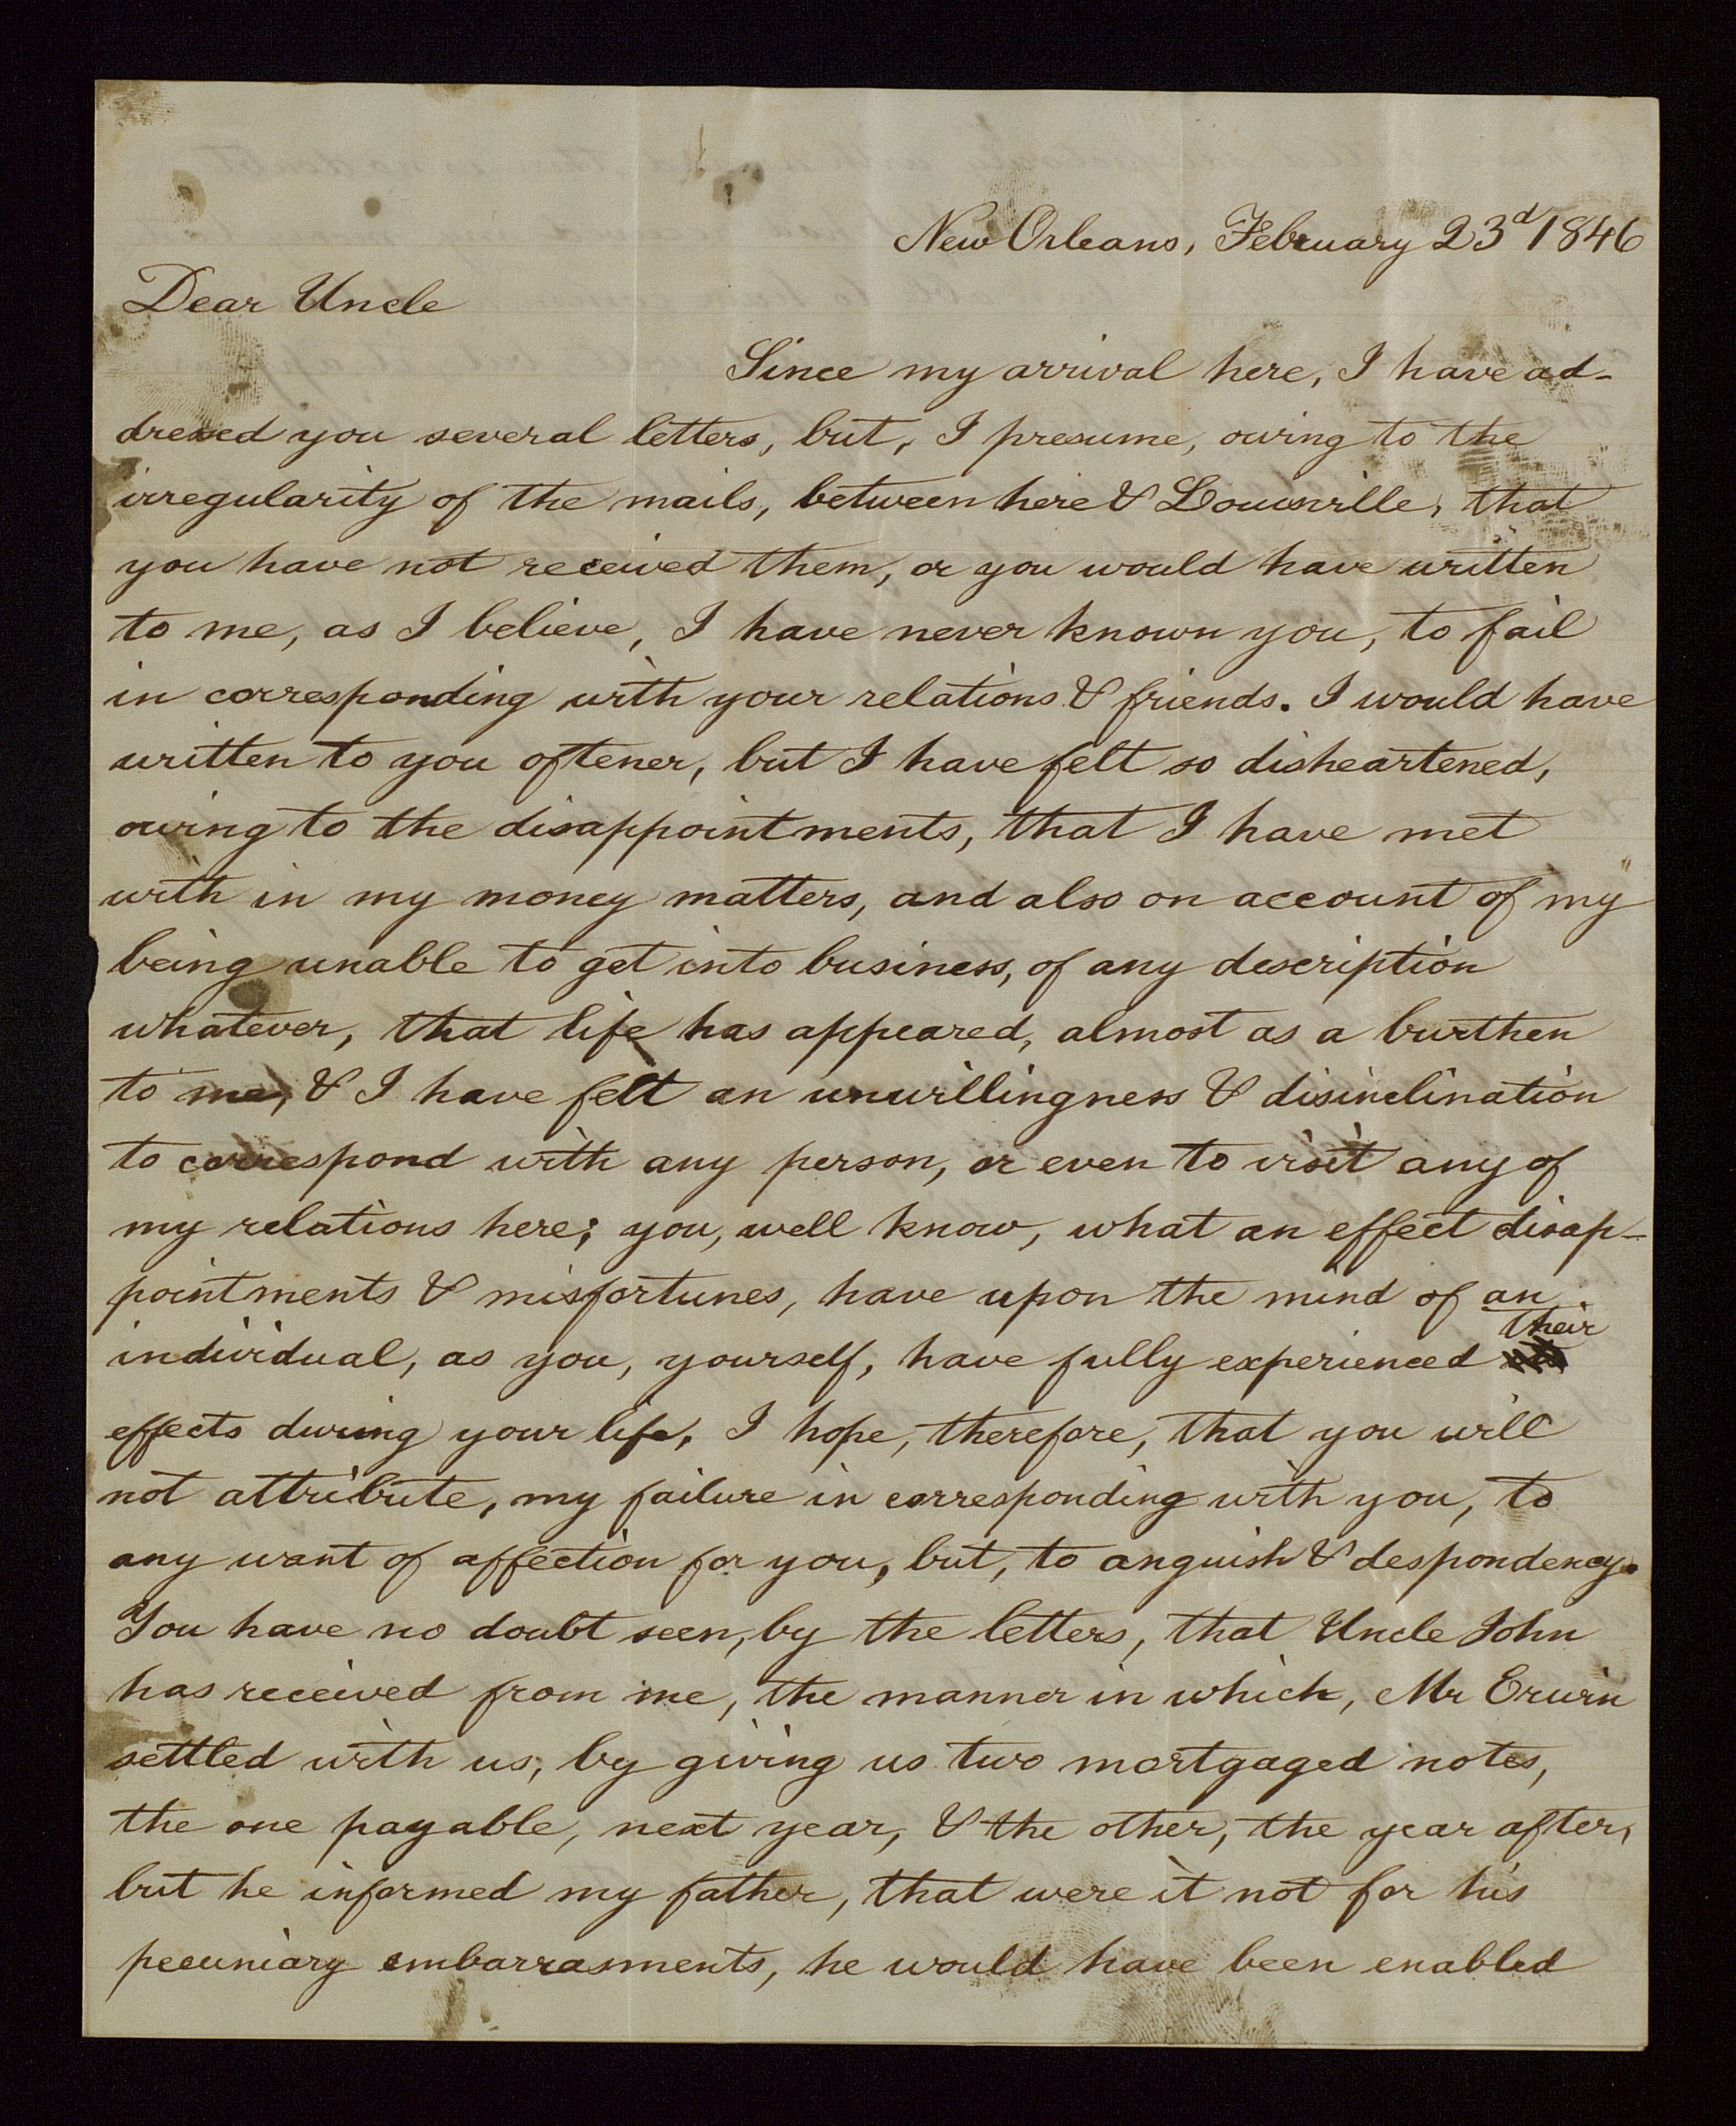 New Orleans, February 23d 1846
Dear Uncle
Since my arrival here, I have ad-
dressed you several letters, but, I presume, owing to the
irregularity of the mails, between here & Louisville, that
you have not received them, or you would have written
to me, as I believe, I have never known you, to fail
in corresponding with your relations & friends. I would have
written to you oftener, but I have felt so disheartened,
owing to the disappointments, that I have met
with in my money matters, and also on account of my
being unable to get into business, of any description
whatever, that life has appeared, almost as a burthen
to me, & I have felt an unwillingness & disinclination
to correspond with any person, or even to visit any of
my relations here; you, well know, what an effect disap-
pointments & misfortunes, have upon the mind of an
individual, as you, yourself, have fully experienced their
effects during your life, I hope, therefore, that you will
not attribute, my failure in corresponding with you, to
any want of affection for you, but, to anguish & despondency.
You have no doubt seen, by the letters, that Uncle John
has received from me, the manner in which, Mr Erwin
settled with us, by giving us two mortgaged notes,
the one payable, next year, & the other, the year after,
but he informed my father, that were it not for his
pecuniary embarrasments, he would have been enabled